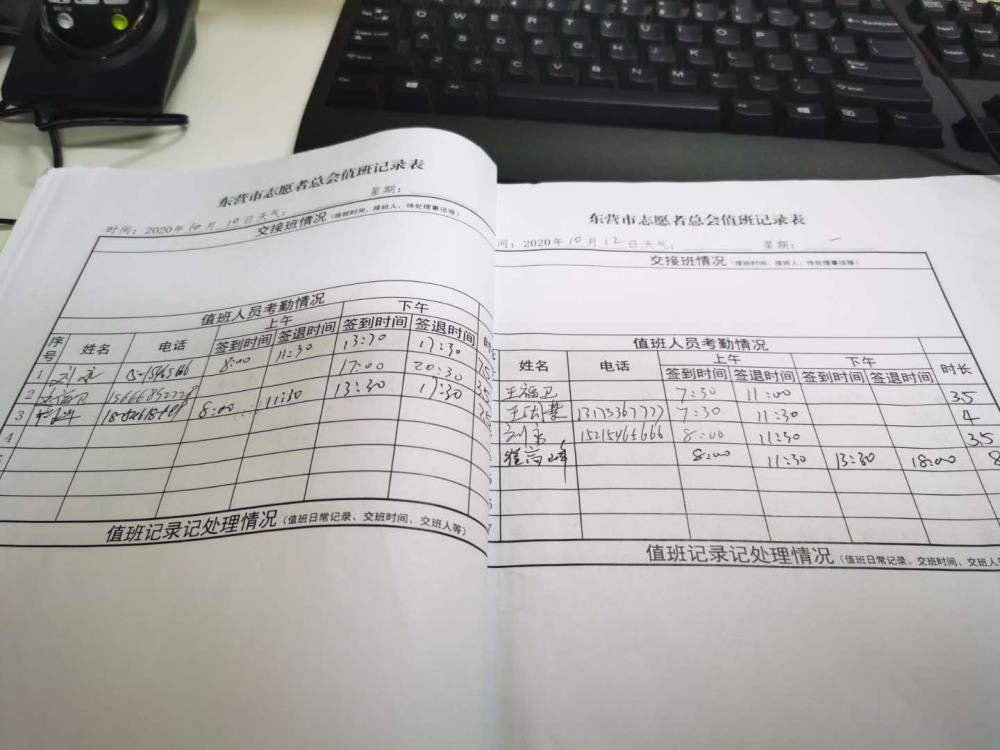 东营市志愿者总会值班记录表
时间：2020年10月10日天气： 星期：
交接班情况（接班时间、接班人、待处理事项等）
值班人员考勤情况
序号 姓名 电话 上午 下午
签到时间 签退时间 签到时间 签退时间
1 8:00 11:30 13:30 17:30
2 17:00 20:30
3 8:00 11:30 13:30 17:30
4
值班记录记处理情况（值班日常记录、交班时间、交班人等）
东营市志愿者总会值班记录表
间：2020年10月12日天气： 星期：一
交接班情况（接班时间、接班人、待处理事项等）
值班人员考勤情况
姓名 电话 上午 下午 时长
签到时间 签退时间 签到时间 签退时间
王福卫 7:30 11:00 3.5
13173367777 7:30 11:30 4
15215465666 8:00 11:30 3.5
程高峰 8:00 11:30 13:30 18:00 8
值班记录记处理情况（值班日常记录、交班时间、交班人